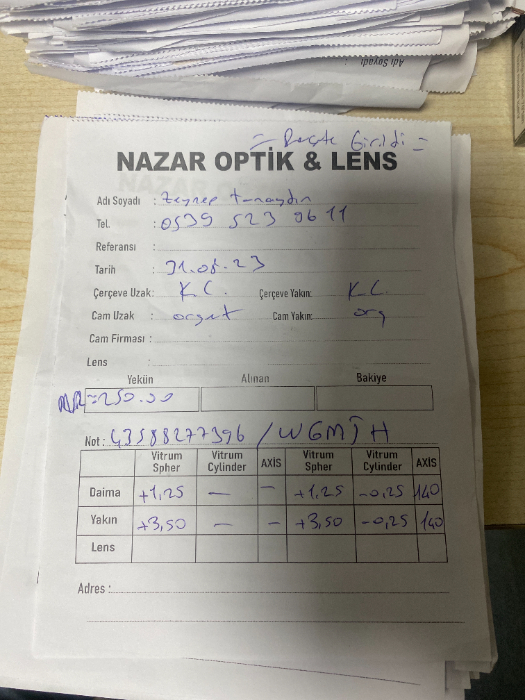 Adı Soyadı
= Reçete Girildi =
NAZAR OPTİK & LENS
Adı Soyadı : Zeynep
Tel. : 0539 523 0611
Referansı :
Tarih : 31.08.23
Çerçeve Uzak: K.C. Çerçeve Yakın: K.C.
Cam Uzak : orgat Cam Yakın: org
Cam Firması :
Lens :
Yekün Alınan Bakiye
=250.00
Not : 43588277396 /
Vitrum Spher Vitrum Cylinder AXİS Vitrum Spher Vitrum Cylinder AXİS
Daima +1,25 — — +1,25 -0,25 140
Yakın +3,50 — — +3,50 -0,25 140
Lens
Adres :